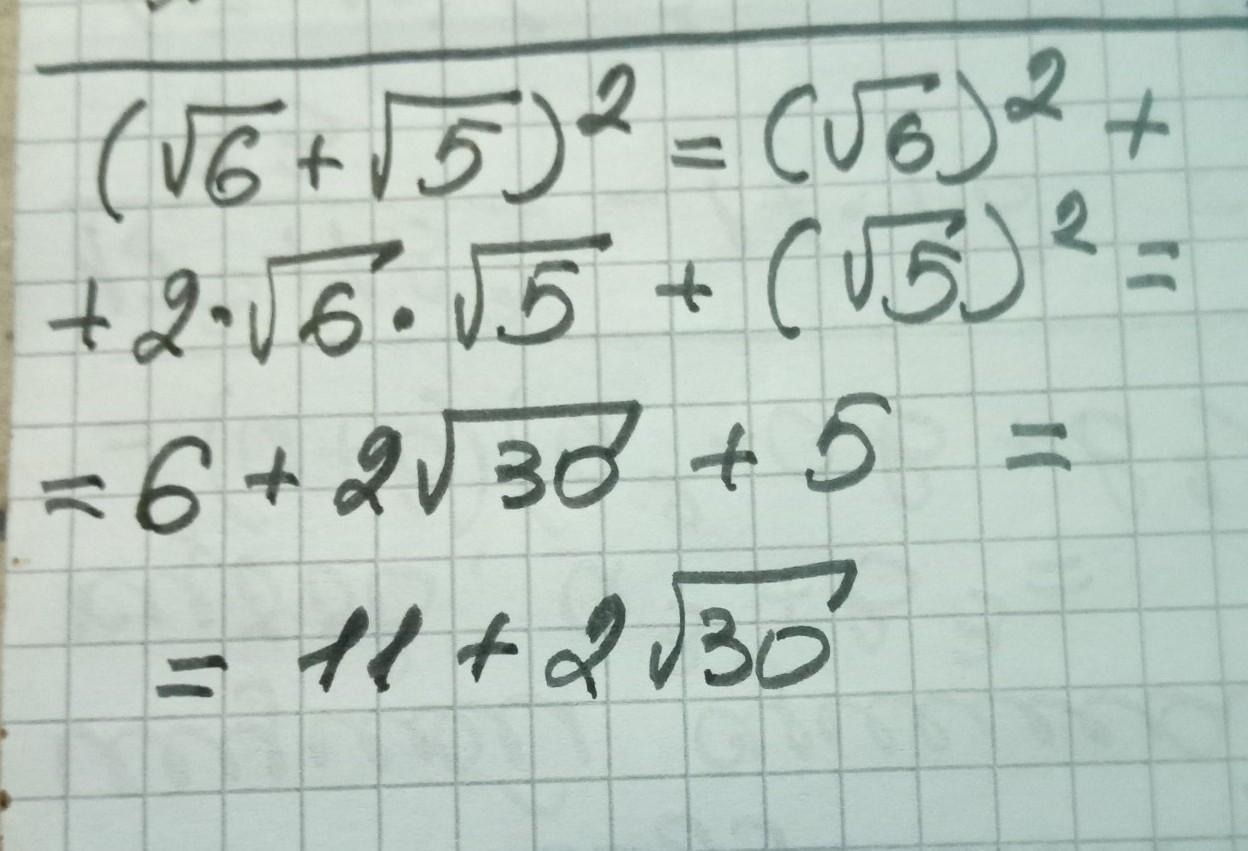 (√6 + √5)² = (√6)² +
+ 2·√6·√5 + (√5)² =
= 6 + 2√30 + 5 =
= 11 + 2√30